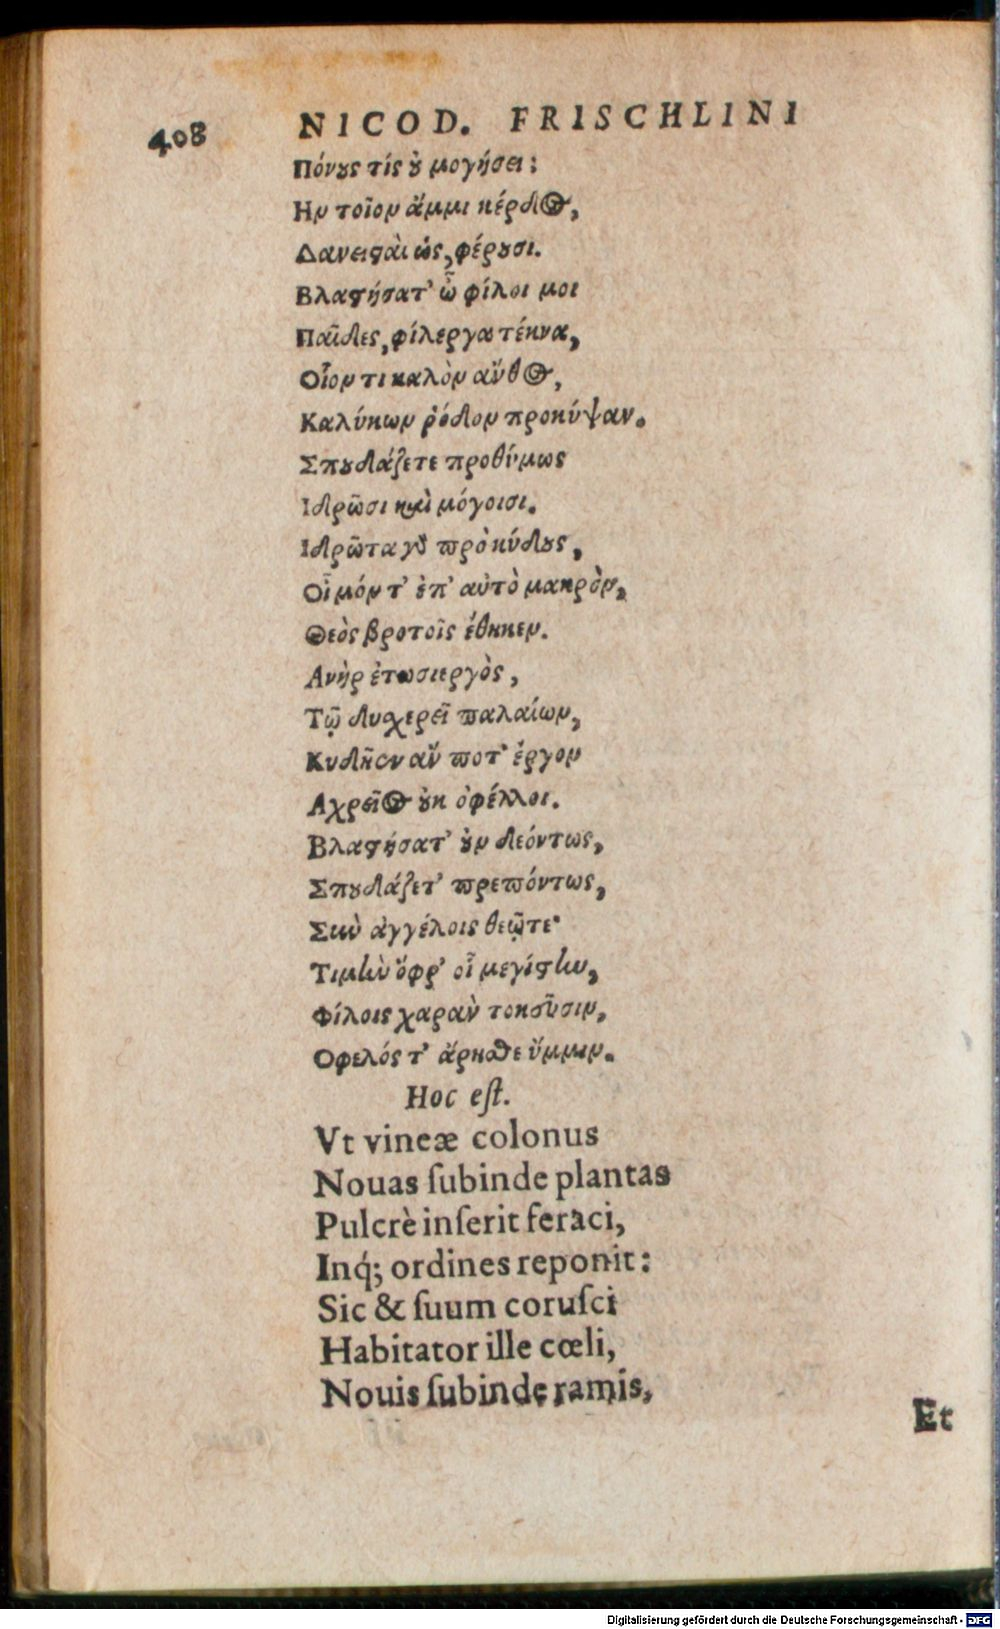 408 NICOD. FRISCHLINI
Πόνȣς τίς ȣ̓ μογήσει;
Ην τοῖον ἄμμι κέρδος,
Δανεισαὶ ὡς, φέρȣσι.
Βλαστήσατ' ὦ φίλοι μοι
Παῖδες, φίλεργα τέκνα,
Οἷον τι καλὸν ἄνθος,
Καλύκων ῥόδον προκύψαν.
Σπȣδάζετε προθύμως
Ιδρῶσι καὶ μόγοισι.
Ιδρῶτα γὸ πρὸ κύδȣς,
Οἷμόν τ' ἐπ' αὐτὸ μακρὸν,
Θεὸς βροτοῖς ἔθηκεν.
Ανὴρ ἐτωσιεργὸς,
Τῷ δυχερεῖ παλαίων,
Κυδῆεν ἄν ποτ' ἔργον
Αχρεῖος ȣ̓κ ὀφέλλοι.
Βλαστήσατ' ȣ̓ν δεόντως,
Σπȣδάζετ' πρεπόντως,
Σὺν ἀγγέλοις θεῷτε·
Τιμὴν ὄφρ' οἷ μεγίστην,
Φίλοις χαρὰν τοκεῦσιν,
Οφελός τ' ἄρησθε ὔμμιν.
Hoc eſt.
Vt vineæ colonus
Nouas ſubinde plantas
Pulcrè inſerit feraci,
Inq́; ordines reponit:
Sic & ſuum coruſci
Habitator ille cœli,
Nouis ſubinde ramis,
Et
Digitalisierung gefördert durch die Deutsche Forschungsgemeinschaft - DFG